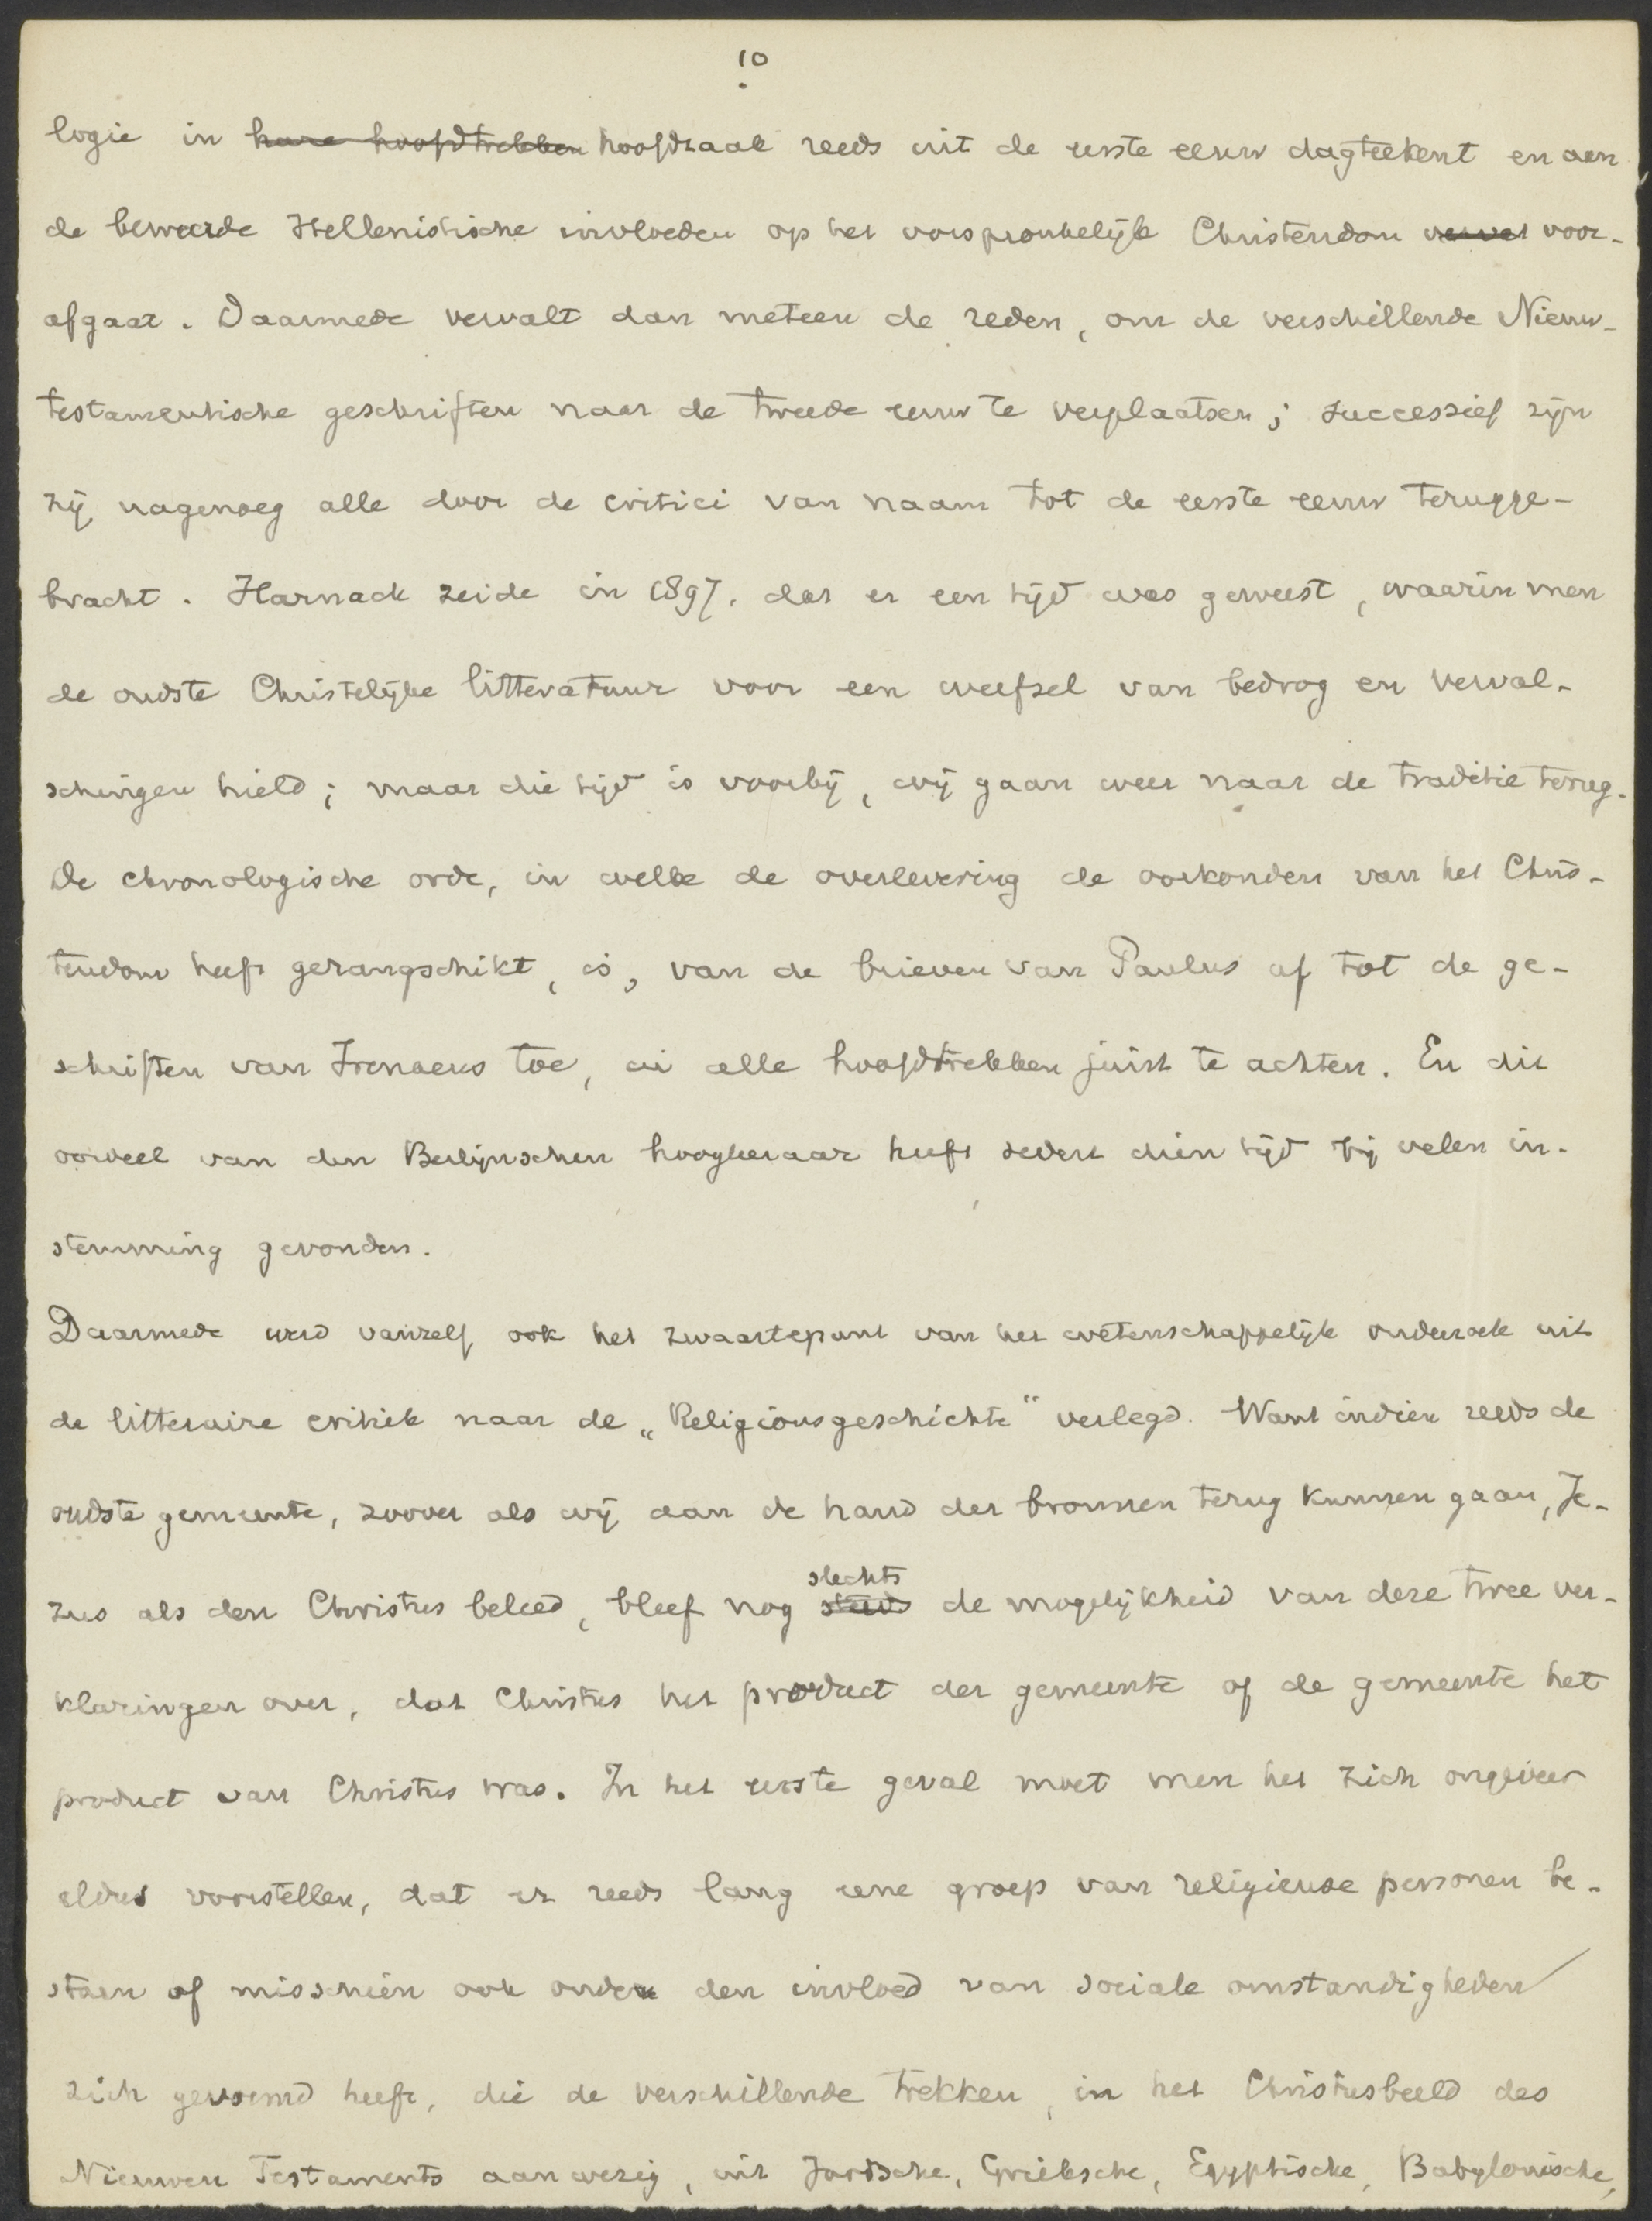 10
logie in hare hoofdtrekken hoofdzaak reeds uit de eerste eeuw dagteekent en aan
de beweerde Hellenistische invloeden op het oorspronkelijk Christendom voor-
afgaat. Daarmede vervalt dan meteen de reden, om de verschillende Nieuw-
testamentische geschriften naar de tweede eeuw te verplaatsen; successief zijn
zij nagenoeg alle door de critici van naam tot de eerste eeuw terugge-
bracht. Harnack zeide in 1897, dat er een tijd was geweest, waarin men
de oudste Christelijke litteratuur voor een weefsel van bedrog en verval-
schingen hield; maar die tijd is voorbij, wij gaan weer naar de traditie terug.
De chronologische orde, in welke de overlevering de oorkonden van het Chris-
tendom heeft gerangschikt, is, van de brieven van Paulus af tot de ge-
schriften van Irenaeus toe, in alle hoofdtrekken juist te achten. En dit
oordeel van den Berlijnschen hoogleeraar heeft sedert dien tijd bij velen in-
stemming gevonden.
Daarmede werd vanzelf ook het zwaartepunt van het wetenschappelijk onderzoek uit
de litteraire critiek naar de „Religionsgeschichte“ verlegd. Want indien reeds de
oudste gemeente, zoover als wij aan de hand der bronnen terug kunnen gaan, Je-
zus als den Christus beleed, bleef nog slechts de mogelijkheid van deze twee ver-
klaringen over, dat Christus het product der gemeente of de gemeente het
product van Christus was. In het eerste geval moet men het zich ongeveer
aldus voorstellen, dat er reeds lang eene groep van religieuse personen be-
staan of misschien ook onder den invloed van sociale omstandigheden
zich gevormd heeft, die de verschillende trekken, in het Christusbeeld des
Nieuwen Testaments aanwezig, uit Joodsche, Grieksche, Egyptische, Babylonische,